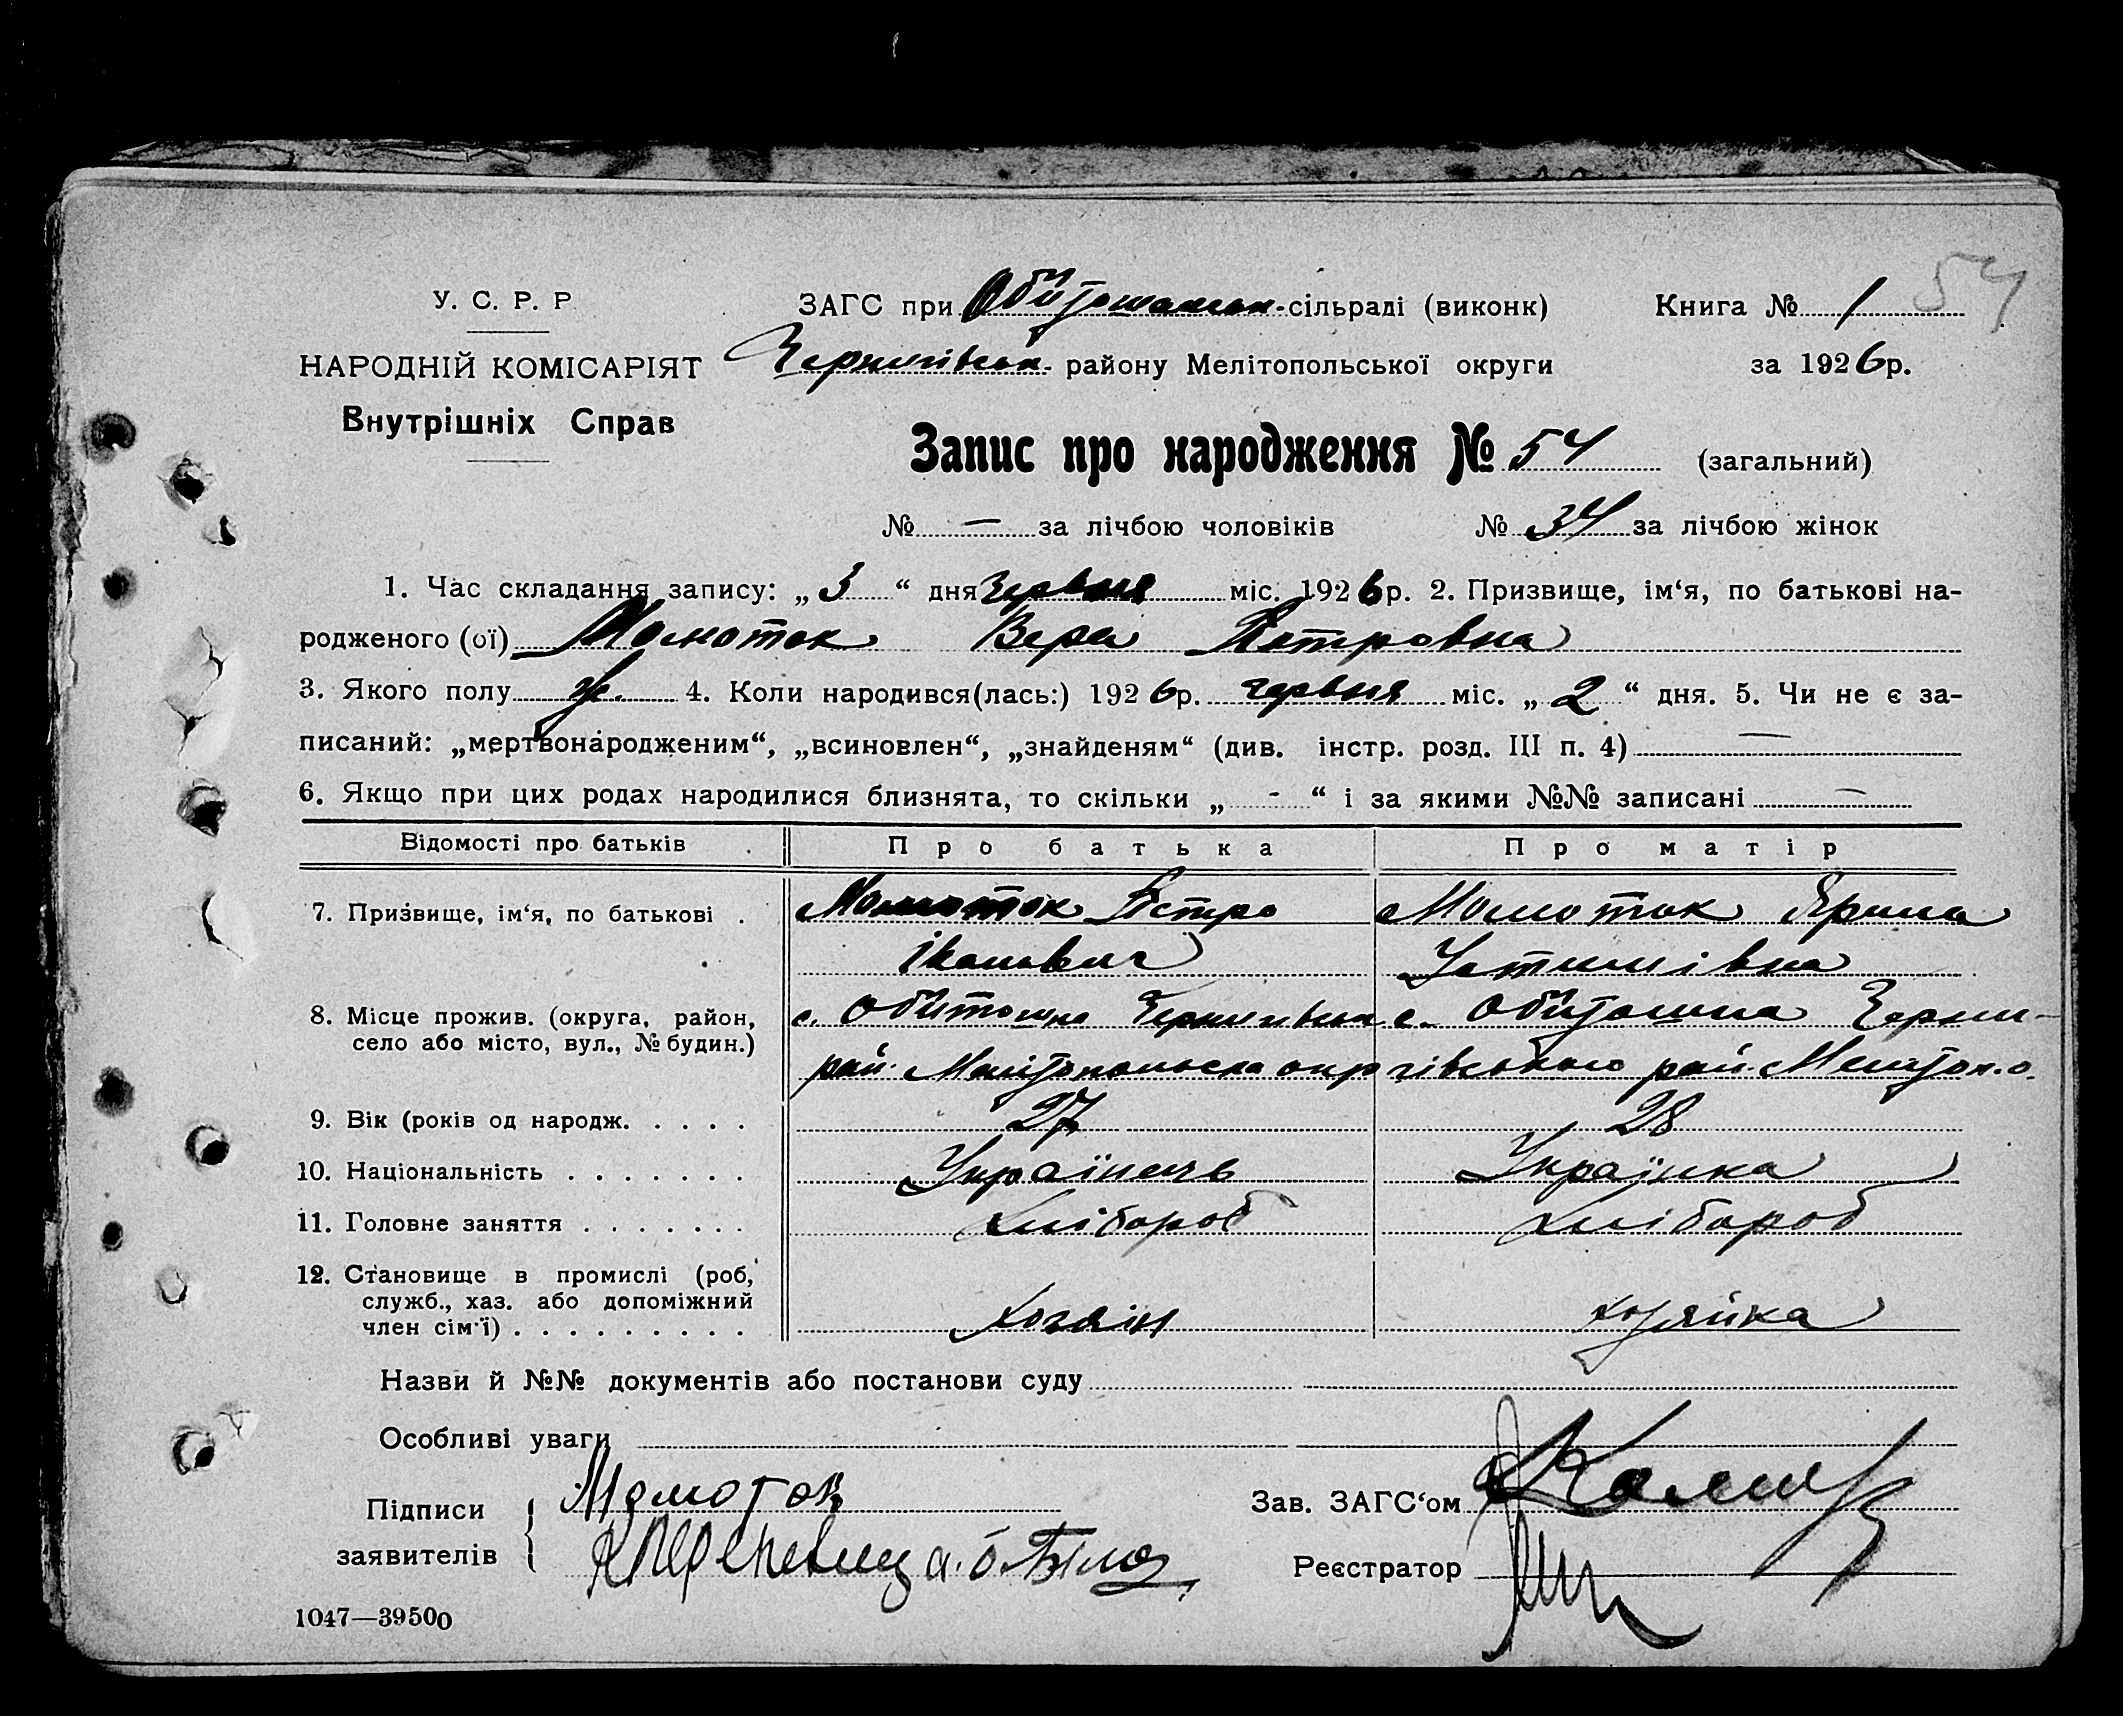 54
У. С. Р. Р
ЗАГС при Обіточанськ. сільраді (виконк) Книга № 1
НАРОДНІЙ КОМІСАРІЯТ Чернигівськ. району Мелітопольської округи за 1926р.
Внутрішніх Справ
Запис про народження № 54 (загальний)
№ — за лічбою чоловіків № 34 за лічбою жінок
1. Час складання запису: „3“ дня червня міс. 1926р. 2. Призвище, ім‘я, по батькові на-
родженого (ої) Момоток Вера Петровна
3. Якого полу ж. 4. Коли народився(лась:) 1926р. червня міс. „2“ дня. 5. Чи не є за-
писаний: „мертвонародженим“, „всиновлен“, „знайденям“ (див. інстр. розд. III п. 4) —
6. Якщо при цих родах народилися близнята, то скільки „ - “ і за якими №№ записані —
Відомості про батьків Про батька Про матір
7. Призвище, ім‘я, по батькові . Момоток Петро Момоток Ярина
Іванович Устинівна
8. Місце прожив. (округа, район, с. Обіточна Чернигівськ с. Обіточна Черни-
село або місто, вул., № будин.) рай. Мелітопольська окр гівського рай. Мелітоп. о.
9. Вік (років од народж. . . . . 27 28
10. Національність . . . . . . . Українець Українка
11. Головне заняття . . . . . . . Хлібороб Хлібороб
12. Становище в промислі (роб,
служб., хаз. або допоміжний
член сім'ї) . . . . . . . . . Хозяін хозяйка
Назви й №№ документів або постанови суду
Особливі уваги
Підписи Момоток Зав. ЗАГС‘ом
заявителів Реєстратор
1047—39500